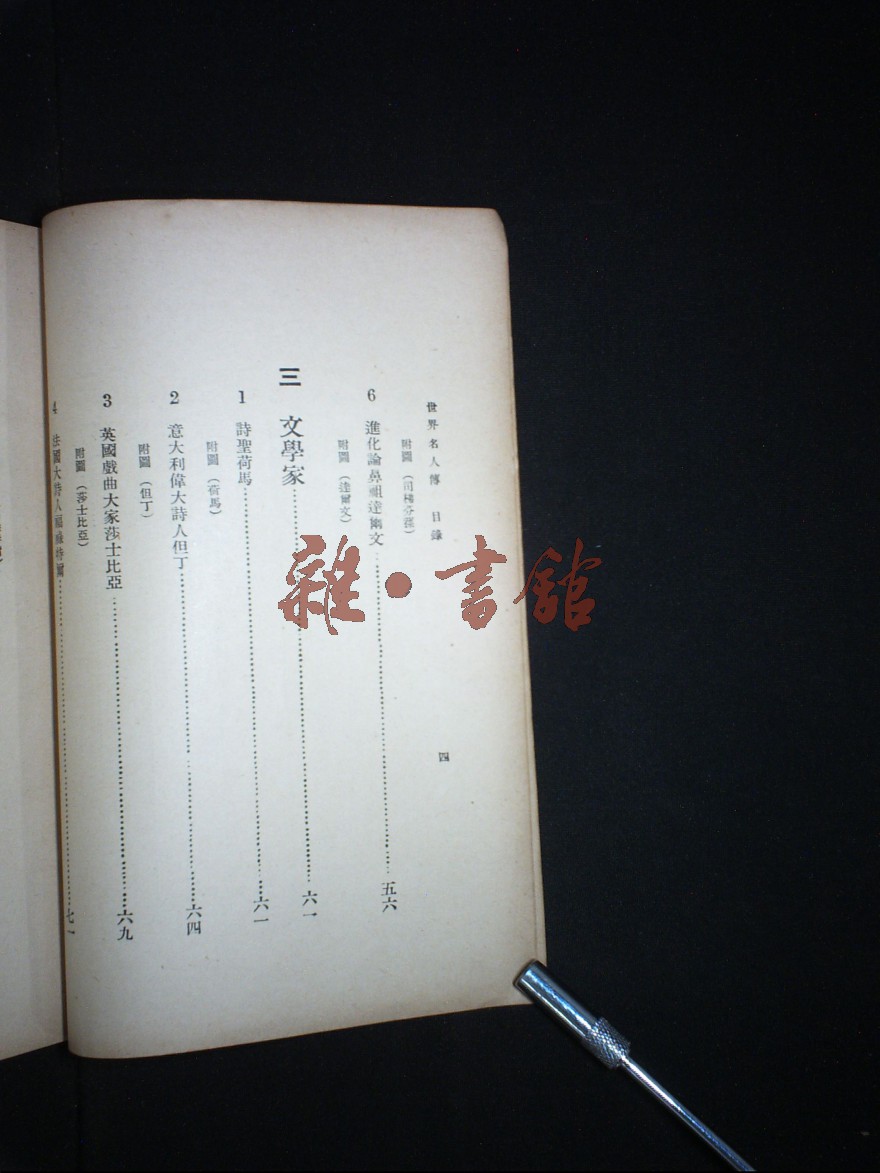 世界名人傳 目錄
四
附圖(司梯芬孫)
6 進化論鼻祖達爾文……五六
附圖(達爾文)
三 文學家……六一
1 詩聖荷馬……六一
附圖(荷馬)
2 意大利偉大詩人但丁……六四
附圖(但丁)
3 英國戲曲大家莎士比亞……六九
附圖(莎士比亞)
4 法國大詩人福祿特爾……七一
雜·書館